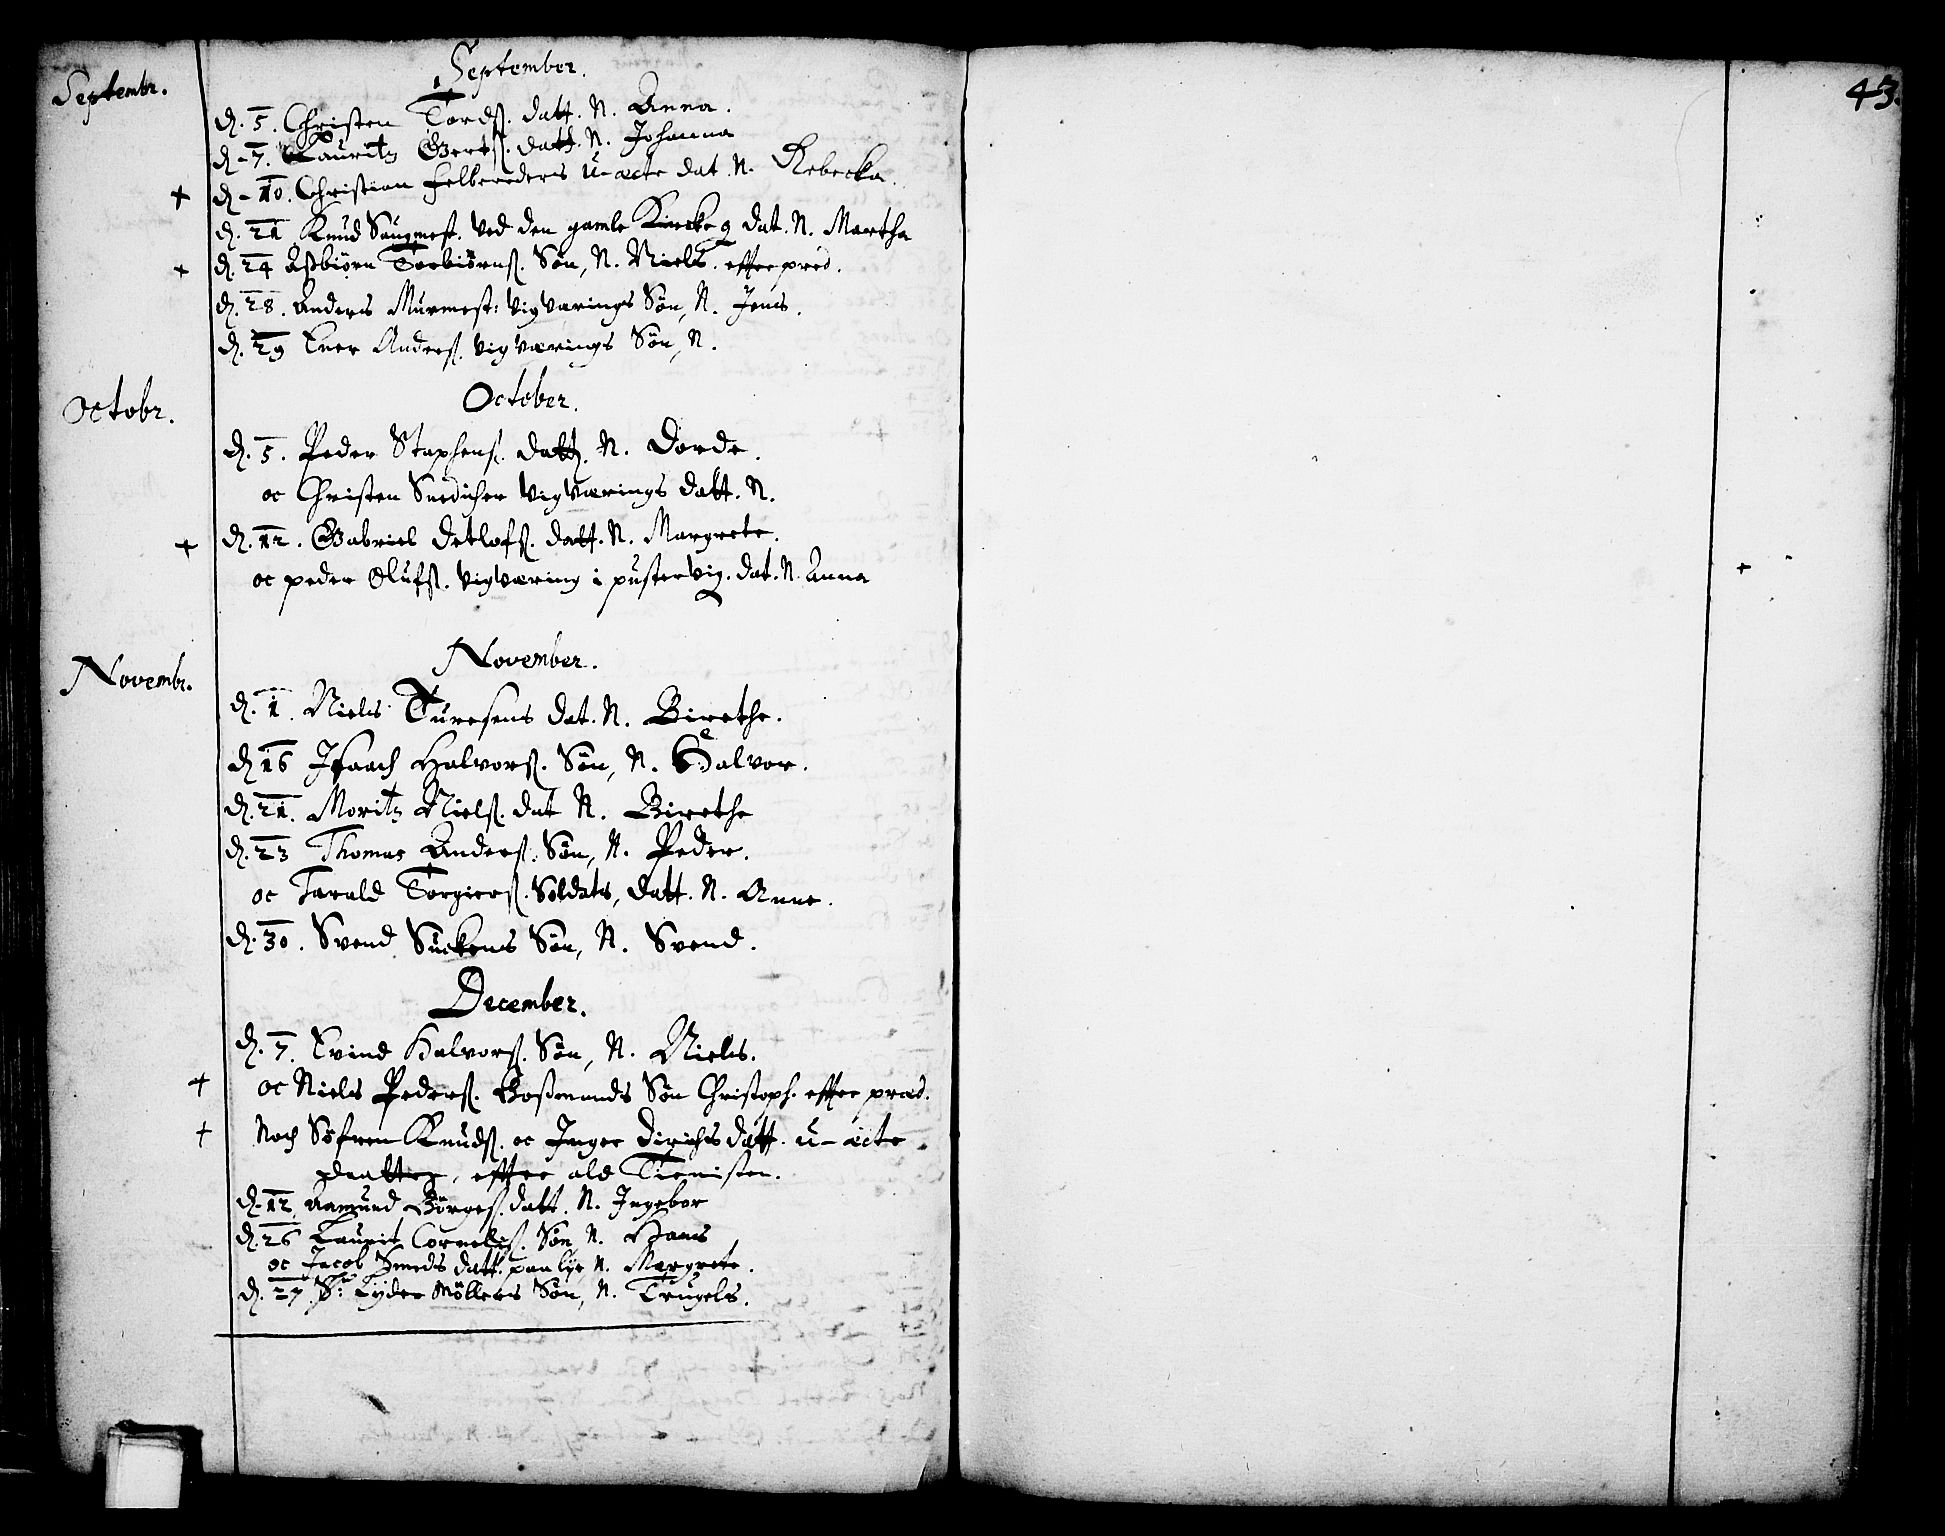 Septembr.
September.
d. 5. Christen Tordß. datt. N. Anna.
d. 7. Lauritz Gertß. datt. N. Johanna
+ d. 10. Christian Felbereders u-æcte dat. N. Rebecka.
d. 21 Knud Saugmest. ved den gamle Kirckes dat. N. Martha
+ d. 24 Asbiørn Torbiørnß. Søn, N. Niels. effter præd.
d. 28. Anders Murmest: Vigværings Søn, N. Jens.
d. 29 Iver Anderß. Vigværings Søn, N.
Octobr.
October.
d. 5. Peder Staphenß. datt. N. Dorde.
oc Christen Snedicher Vigværings datt. N.
+ d. 12. Gabriel Detlofß. datt. N. Margrete.
oc peder Olufß. Vigværing i pustervig. dat. N. Anna
Novembr.
November.
d. 1. Niels Turesens dat. N. Birethe.
d. 16 Isaach Halvorß. Søn, N. Halvor.
d. 21. Moritz Nielß. dat N. Birethe
d. 23 Thomas Anderß. Søn, N. Peder.
oc Tarald Torgierß. Soldats, datt. N. Anne.
d. 30. Svend Suckens Søn, N. Svend.
December.
d. 7. Evind Halvorß. Søn, N. Niels.
+ oc Niels Pederß. Bosmands Søn Christoph. effter præd.
+ Noch Søfren Knudß. oc Inger Dirichs datt. u-æcte
daatter, effter ald Tienisten.
d. 12. Aamund Børgeß. datt. N. Ingebor
d. 26 Laurit Corneliß. Søn N. Hans
oc Jacob Smeds datt. paa lye N. Margrete.
d. 27. Sr. Lyder Møllers Søn, N. Trugels.
43.
+